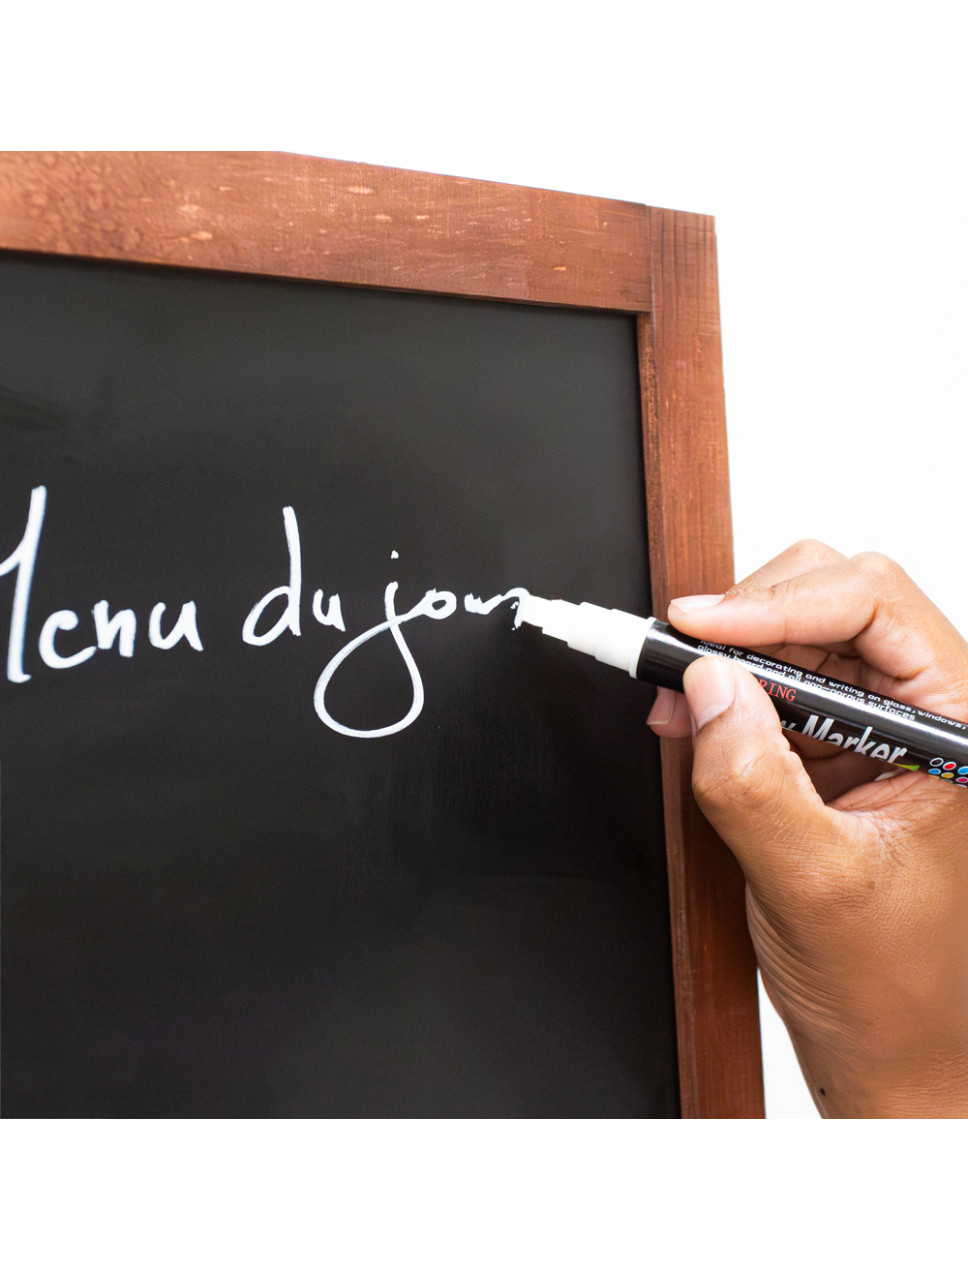 Menu du jour
ideal for decorating and writing on glass, windows,
glossy board and all non-porous surfaces
Marker